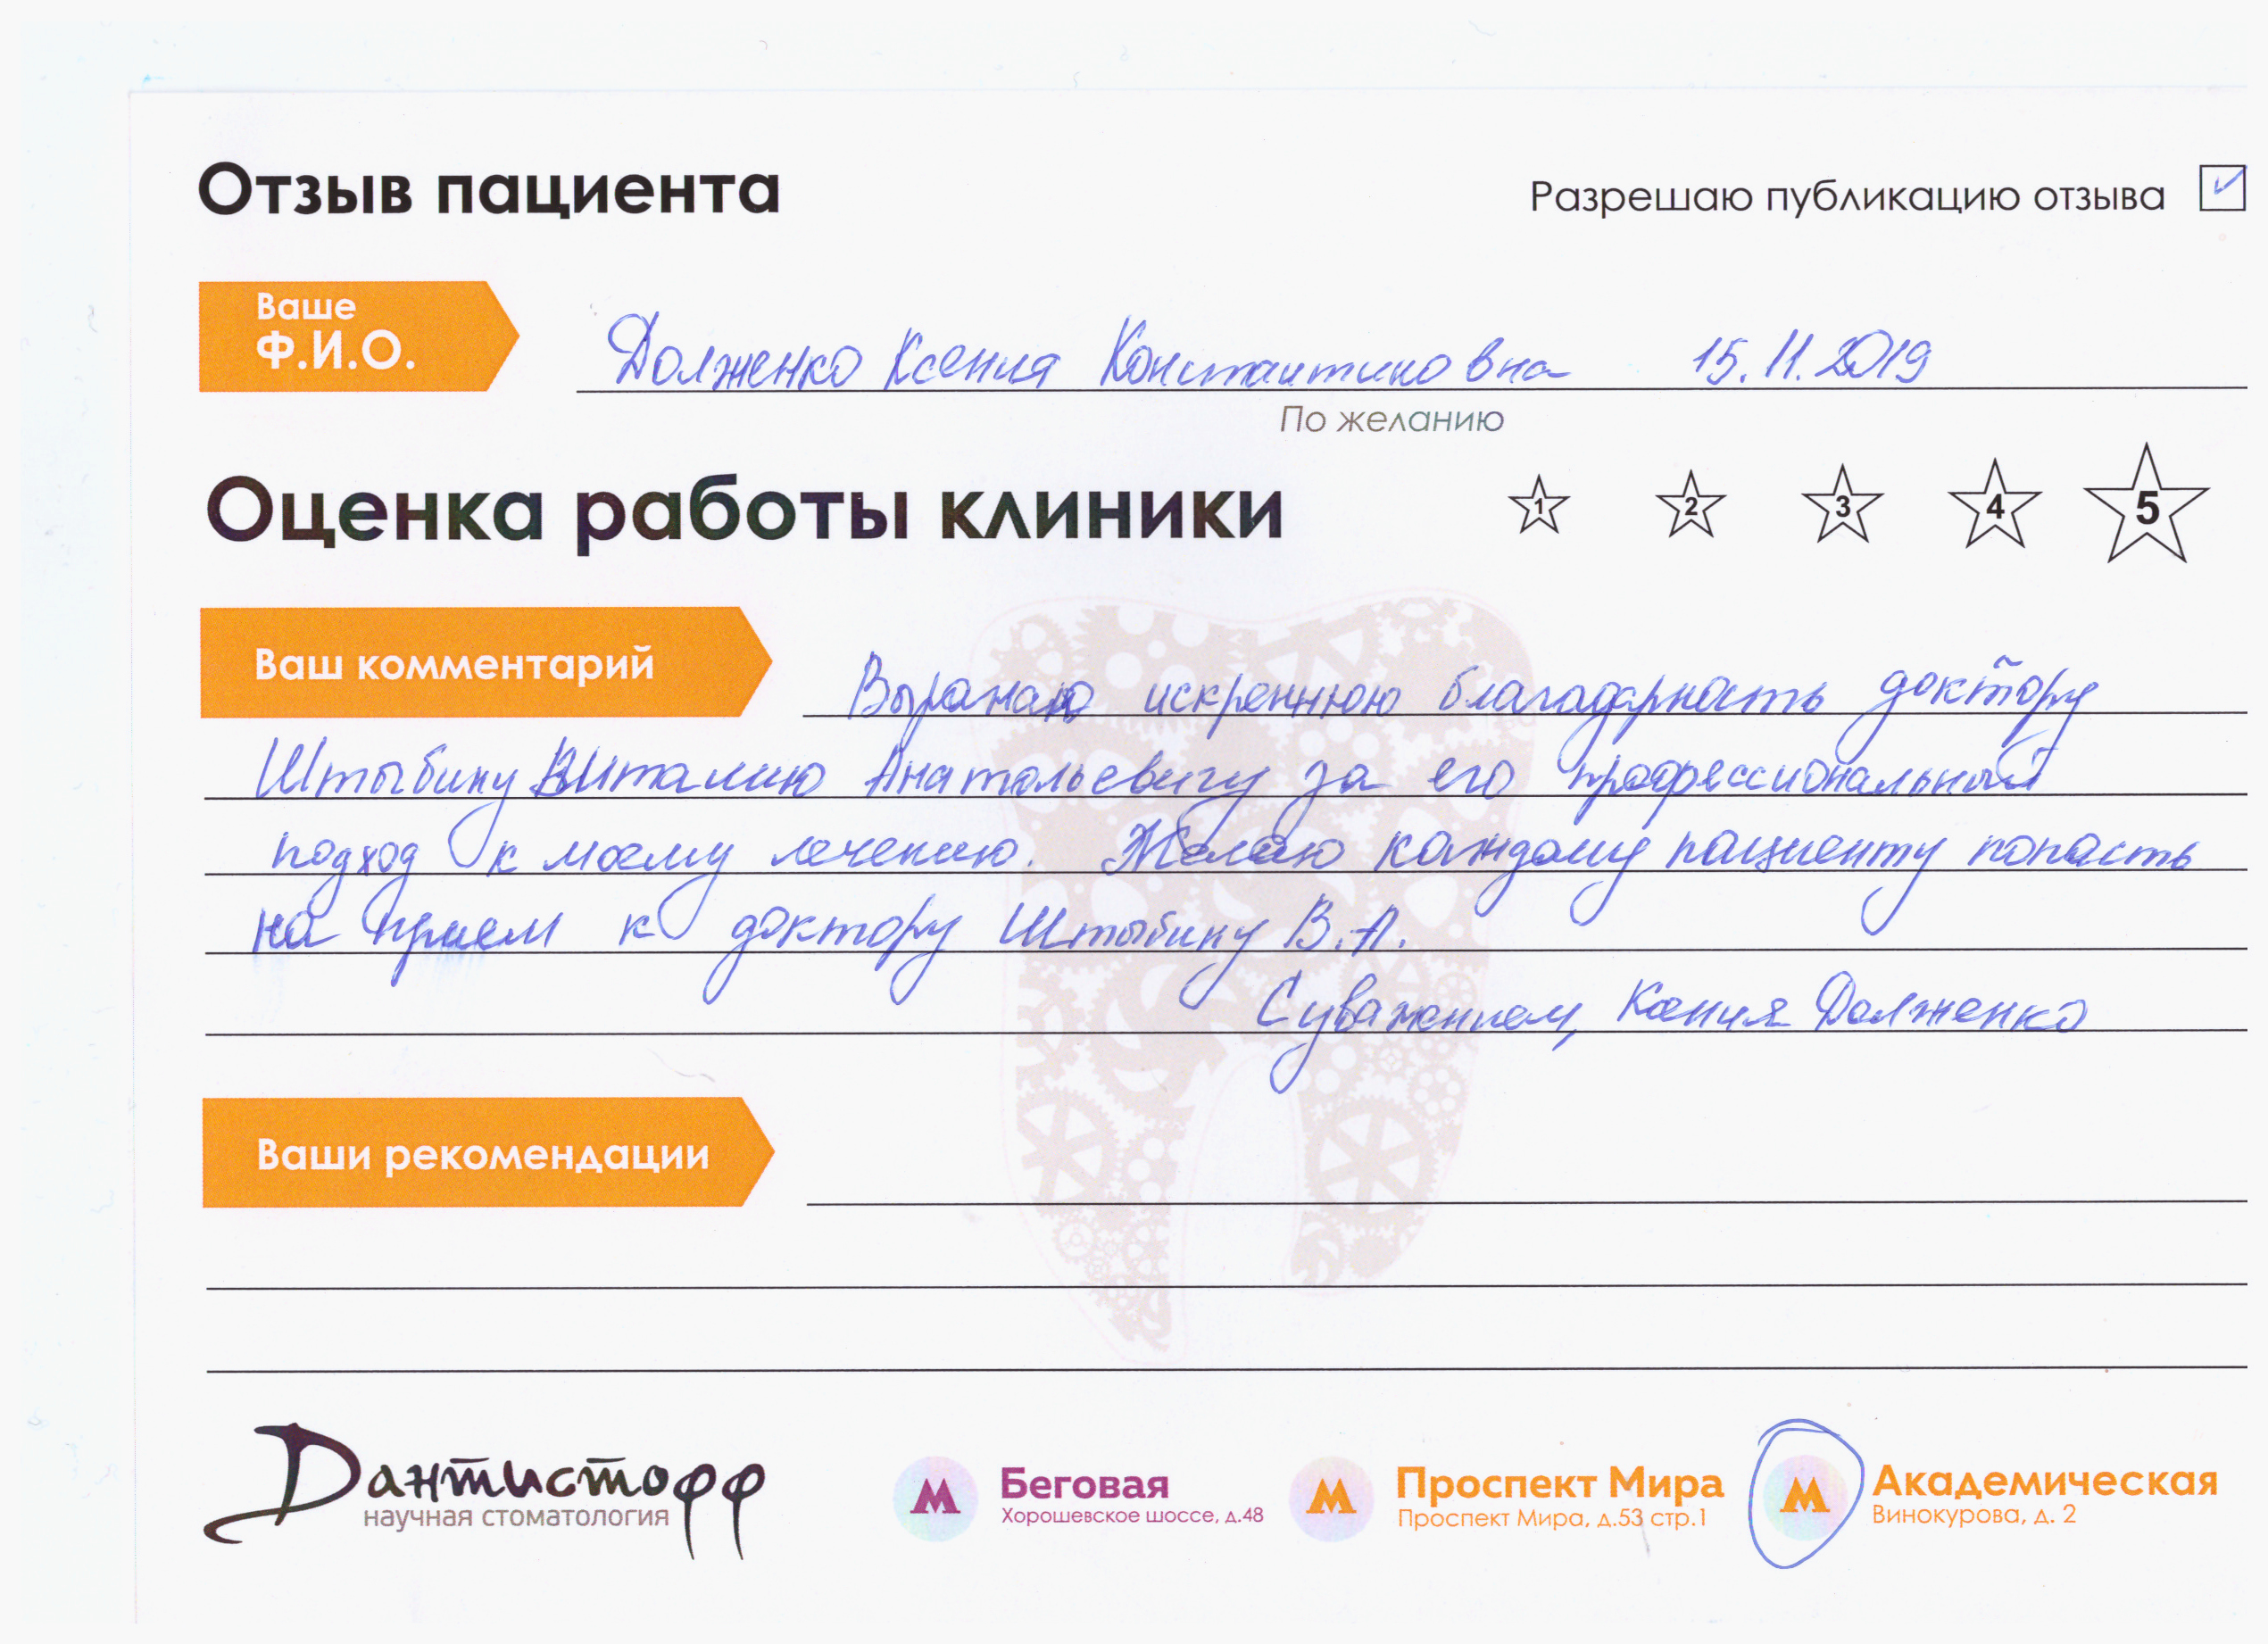 Отзыв пациента
Разрешаю публикацию отзыва
Ваше
Ф.И.О.
Долженко Ксения Константиновна 15.11.2019
По желанию
Оценка работы клиники
1 2 3 4 5
Ваш комментарий
Выражаю искреннюю благодарность доктору
Штыбину Виталию Анатольевичу за его профессиональный
подход к моему лечению. Желаю каждому пациенту попасть
на прием к доктору Штыбину В.А.
С уважением, Ксения Долженко
Ваши рекомендации
Дантистофф
научная стоматология
М Беговая
Хорошевское шоссе, д.48
М Проспект Мира
Проспект Мира, д.53 стр.1
М Академическая
Винокурова, д. 2